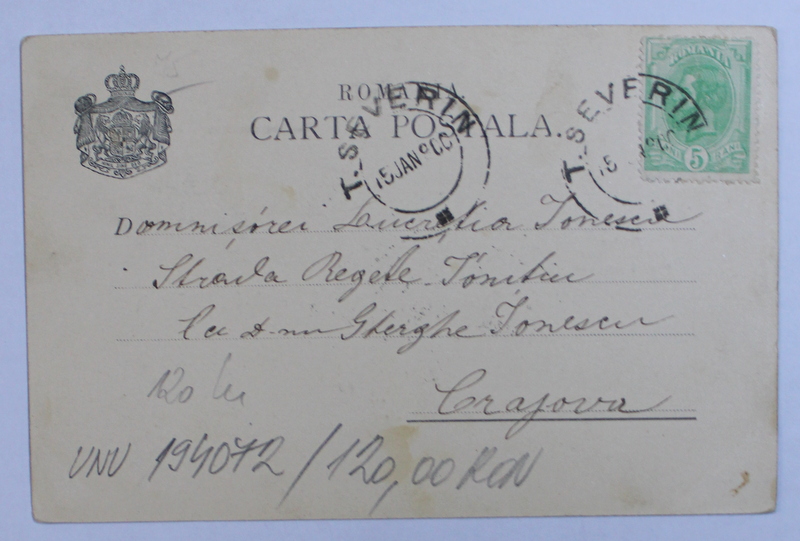 ROMANIA.
CARTA POSTALA.
T.-SEVERIN
15 JAN 900
T.-SEVERIN
ROMANIA
5
Domnișórei Lucreția Ionescu
Strada Regele
La D-nu Gherghe Ionescu
Crajova
120 lei
UNU 194072 / 120,00 RON